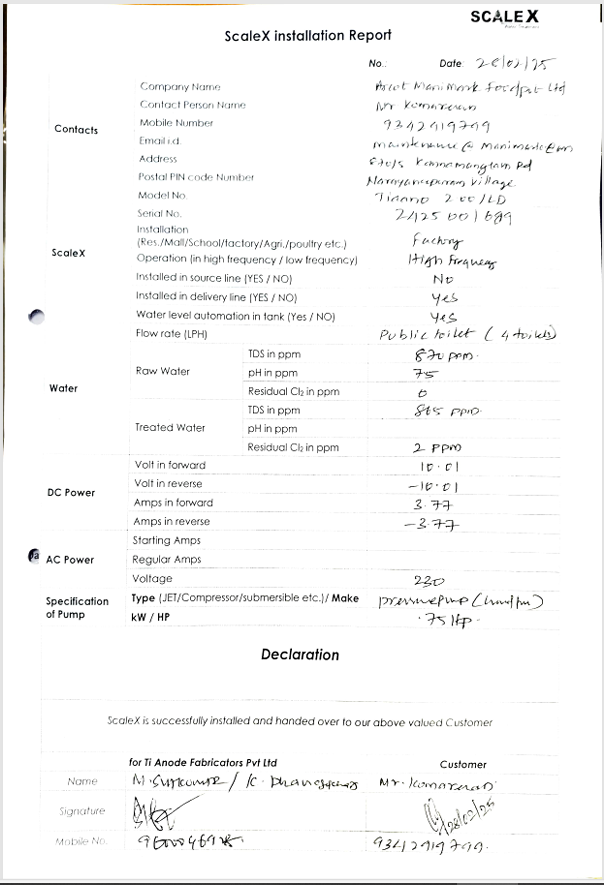 SCALEX
ScaleX installation Report
No.: Date: 28/02/25
Contacts
Company Name Arcot Manimark Food Pvt Ltd
Contact Person Name Mr Kumaresan
Mobile Number 9342919799
Email i.d. maintenance@
Address Rd
Postal PIN code Number Village
ScaleX
Model No.
Serial No.
Installation
(Res./Mall/School/factory/Agri./poultry etc.) Factory
Operation (in high frequency / low frequency) High Frequency
Installed in source line (YES / NO) No
Installed in delivery line (YES / NO) Yes
Water level automation in tank (Yes / No) Yes
Flow rate (LPH) Public toilet ( 4 toilets)
Water
Raw Water
TDS in ppm 870 ppm.
pH in ppm 75
Residual Cl2 in ppm 0
Treated Water
TDS in ppm 865 ppm.
pH in ppm
Residual Cl2 in ppm 2 PPM
DC Power
Volt in forward 10.01
Volt in reverse -10.01
Amps in forward 3.77
Amps in reverse -3.77
AC Power
Starting Amps
Regular Amps
Voltage 230
Specification
of Pump
Type (JET/Compressor/submersible etc.)/ Make pressure pump
kW / HP .75 HP.
Declaration
ScaleX is successfully installed and handed over to our above valued Customer
for Ti Anode Fabricators Pvt Ltd Customer
Name M. / K. Mr. Kumaresan
Signature 28/02/25
Mobile No. 9342919799.